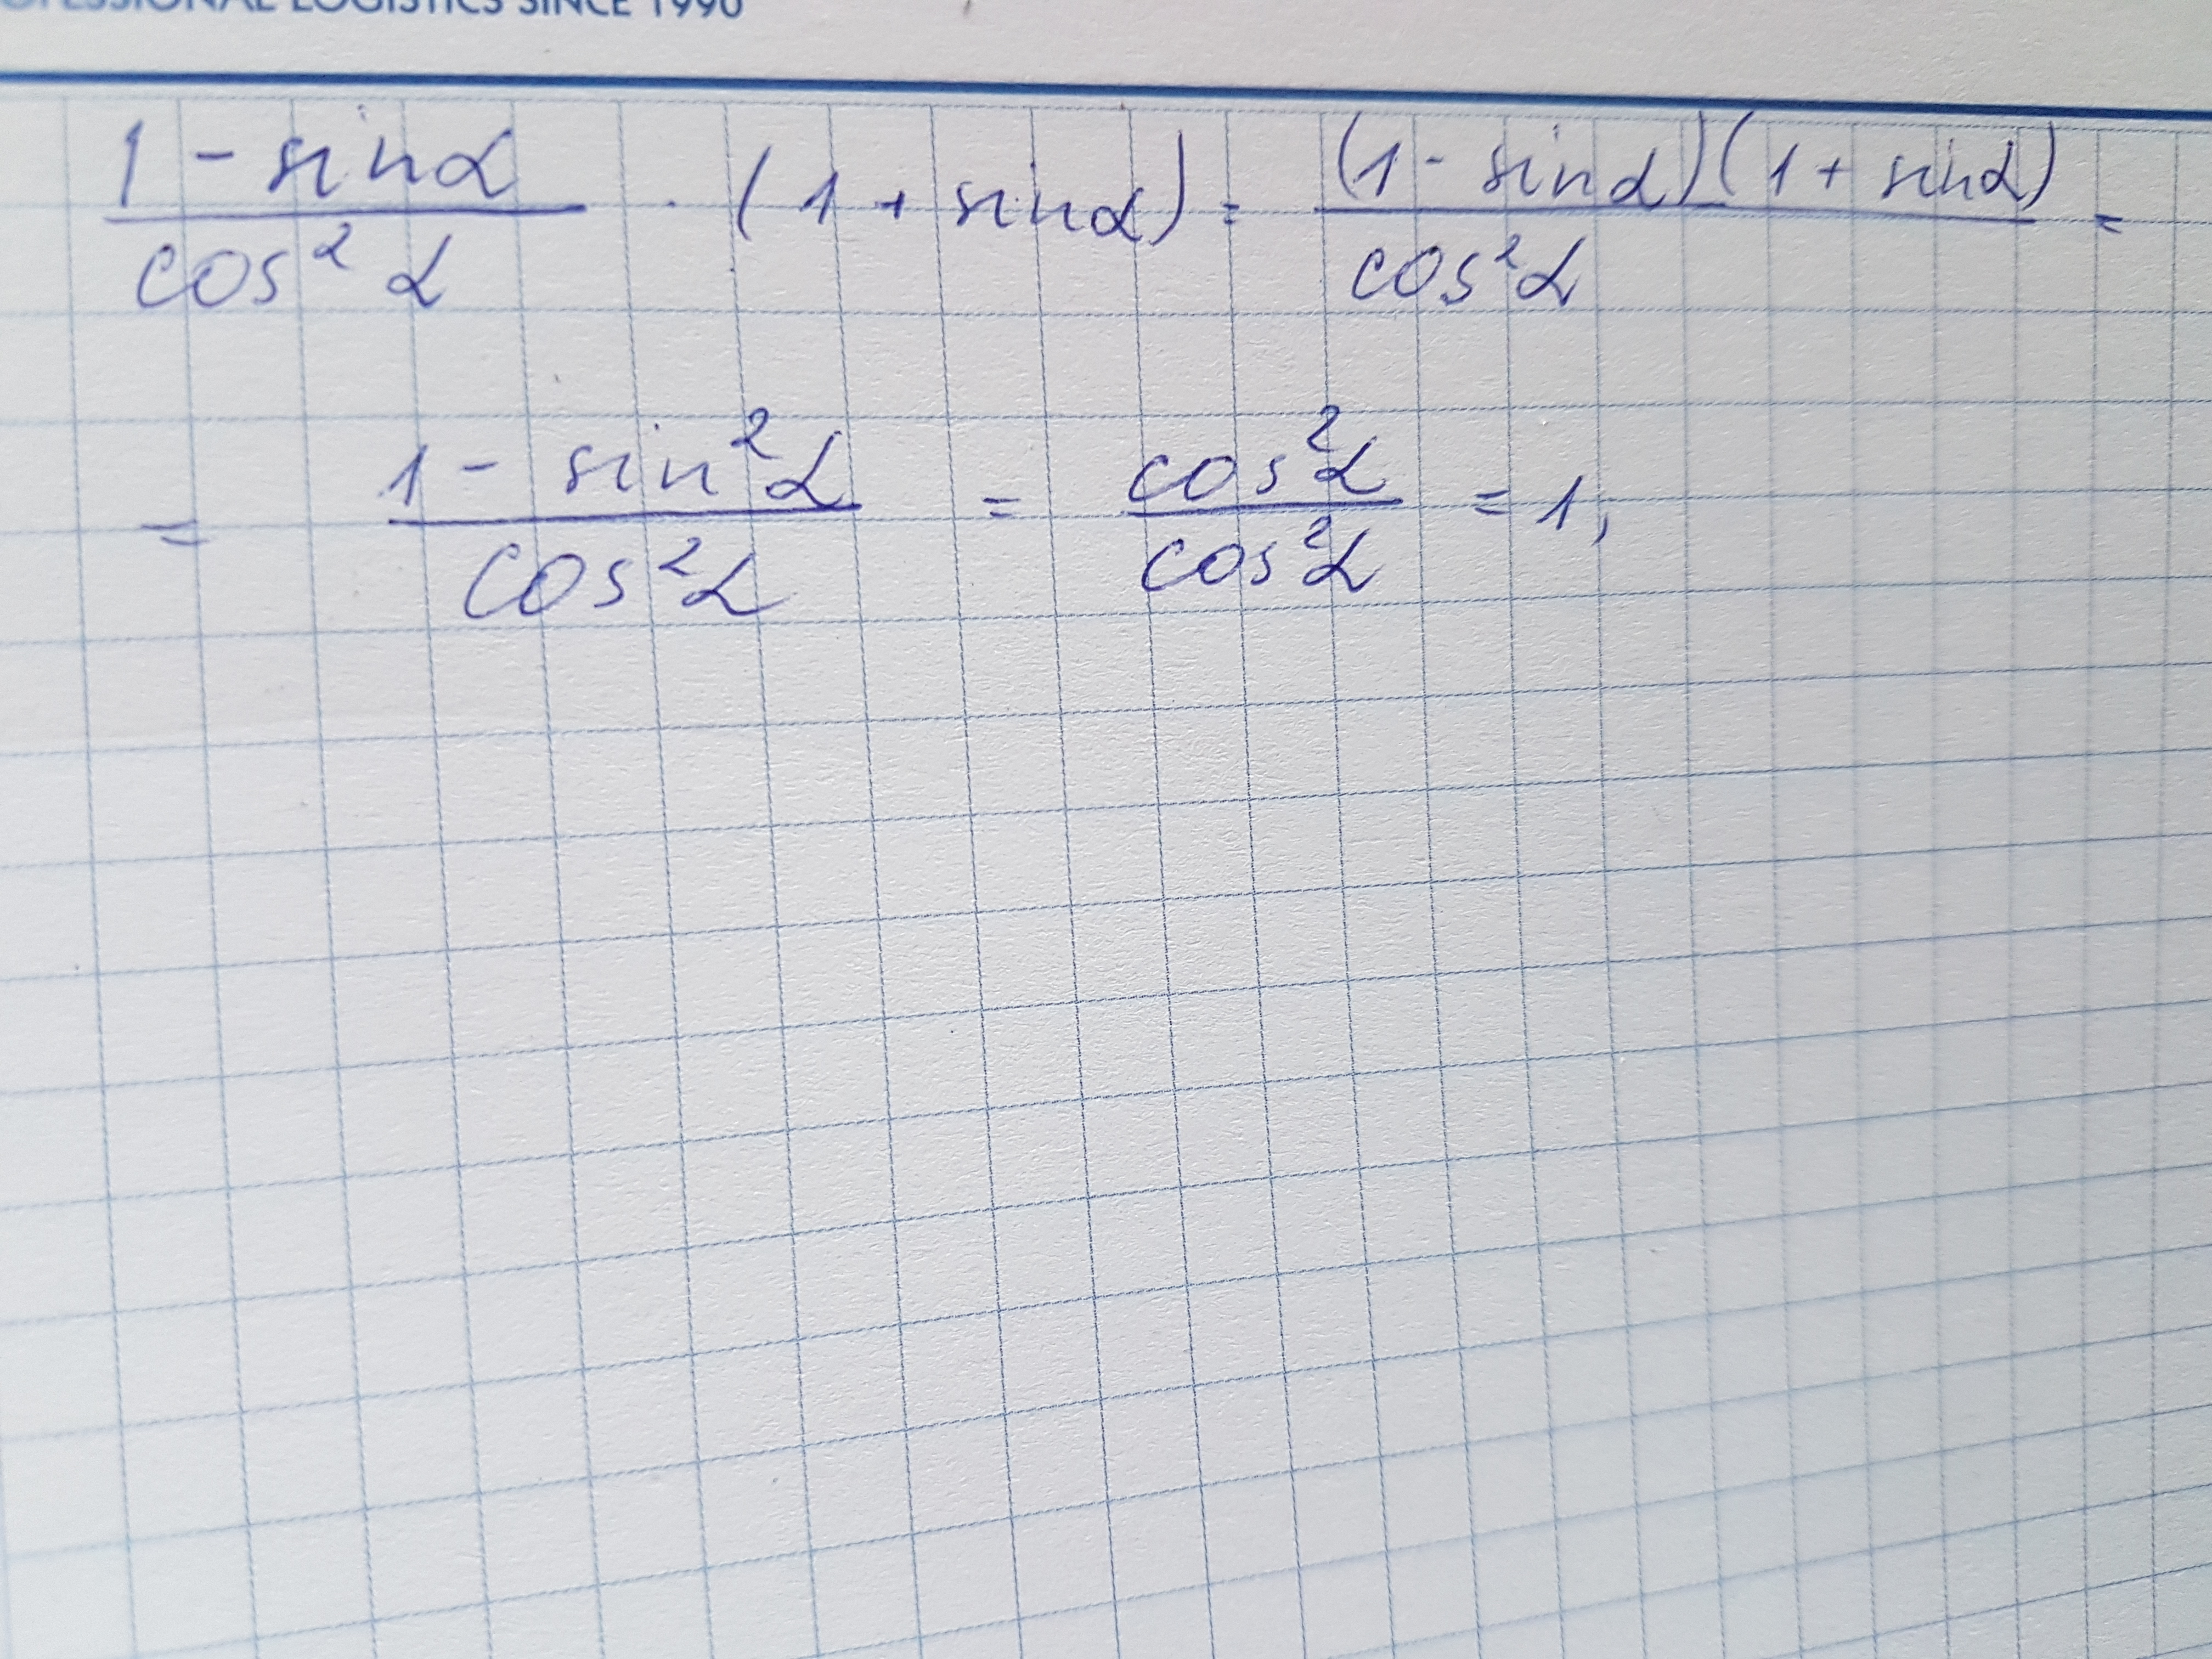 PROFESSIONAL LOGISTICS SINCE 1990
(1 - sinα)/(cos² α) · (1 + sinα) = ((1 - sinα)(1 + sinα))/(cos²α) =
= (1 - sin²α)/(cos²α) = (cos²α)/(cos²α) = 1,